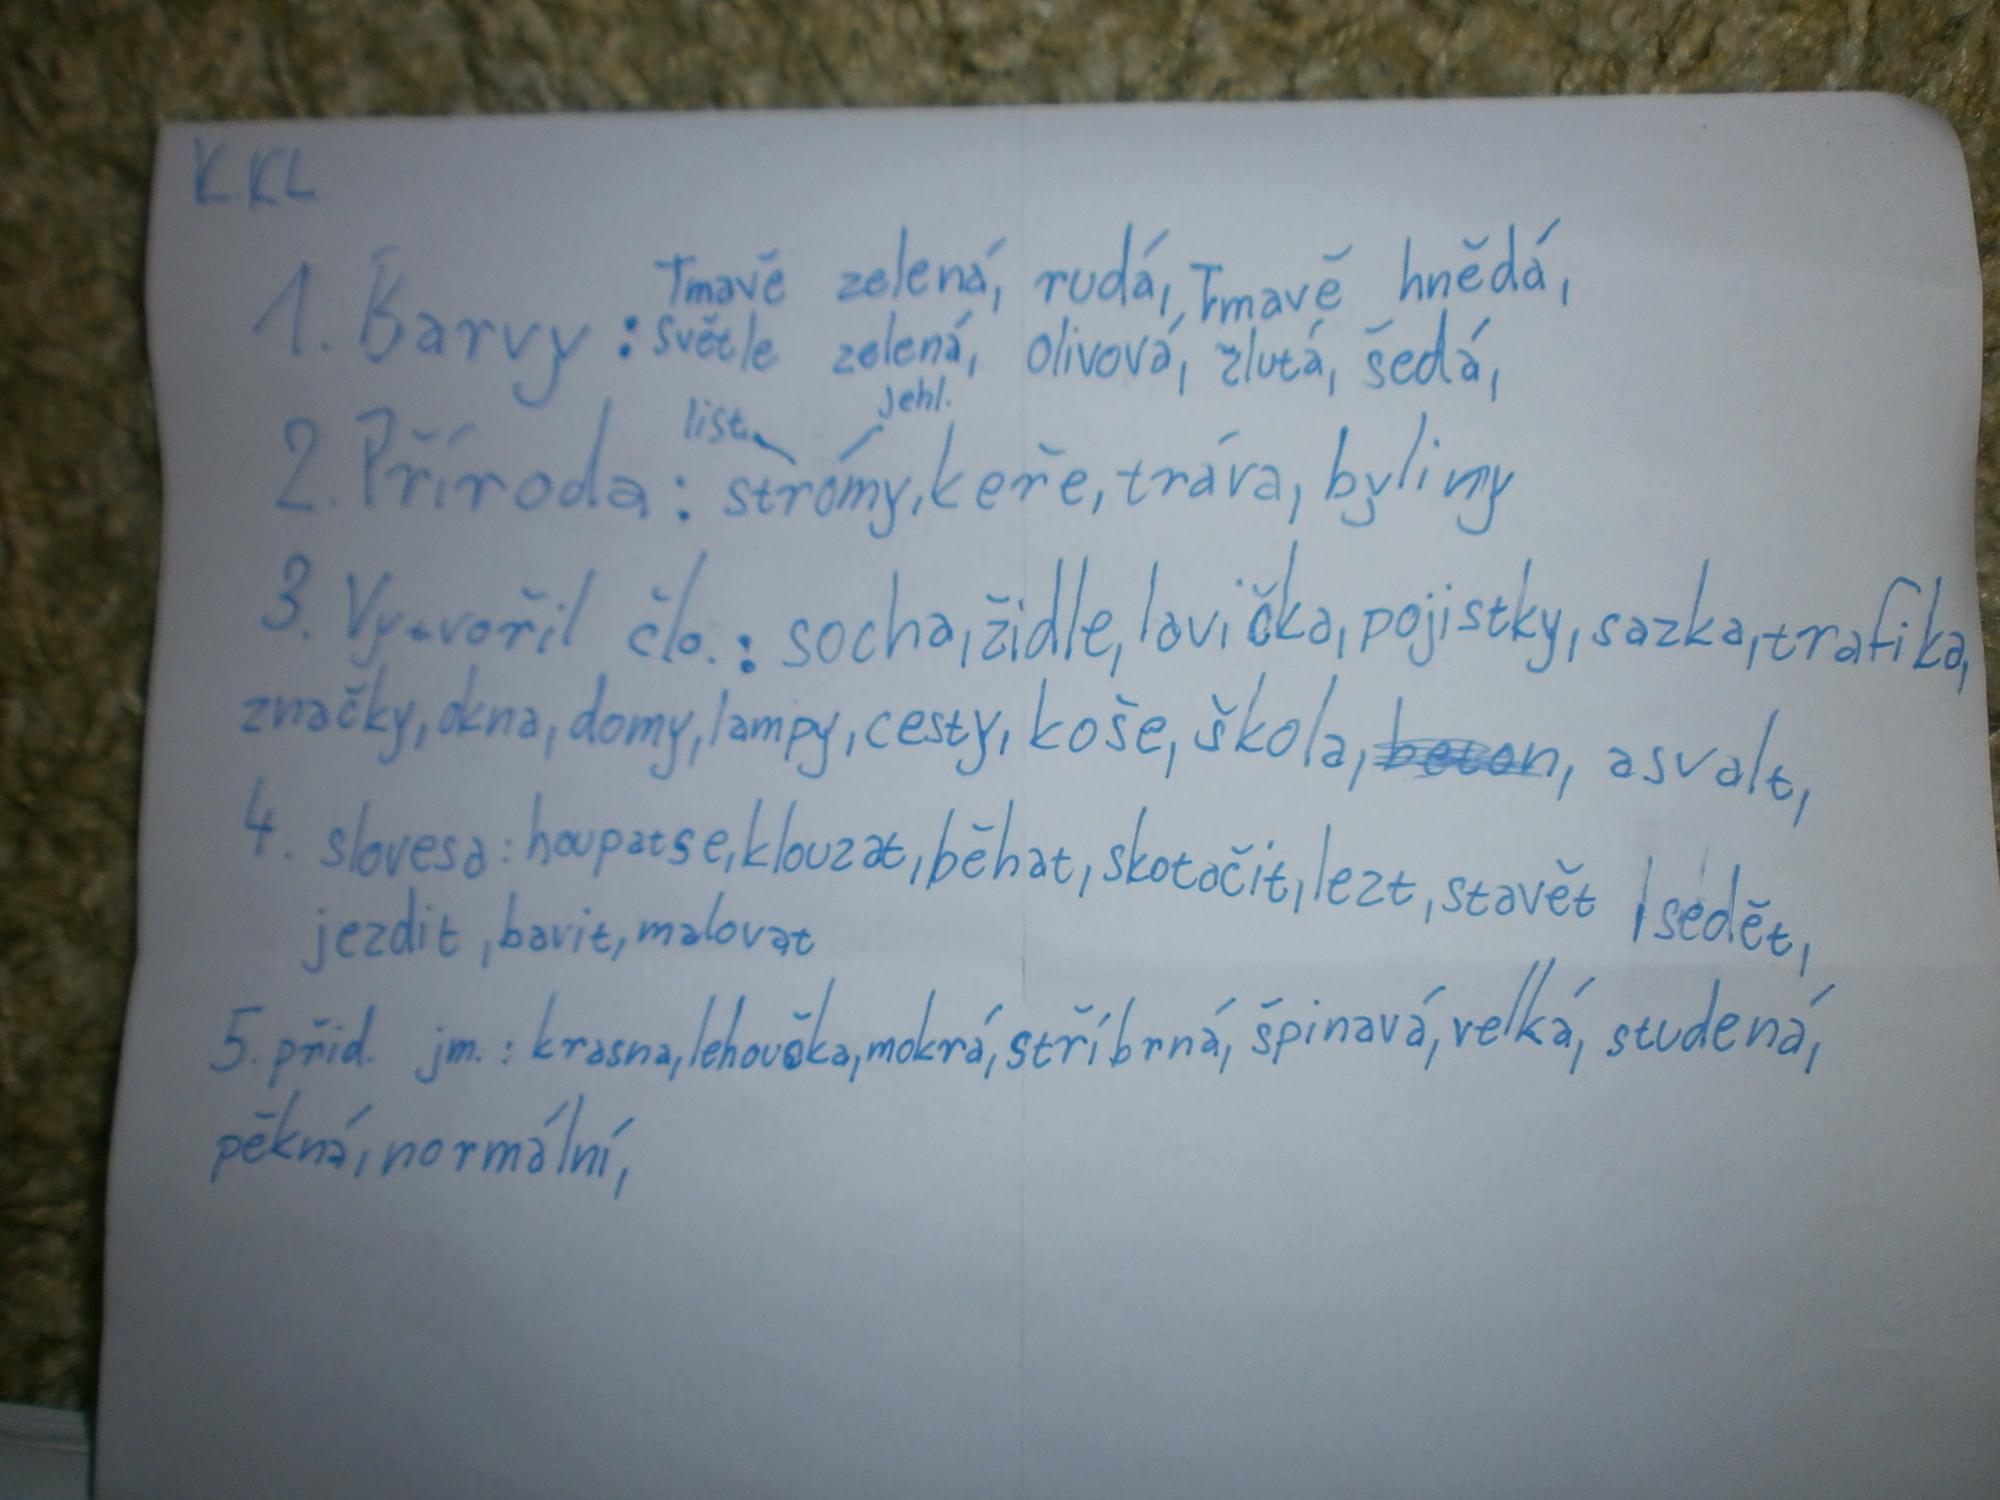 K.KL
Tmavě zelená, rudá, Tmavě hnědá,
1. Barvy: světle zelená, olivová, žlutá, šedá,
list. jehl.
2. Příroda: strómy, keře, tráva, byliny
3. Vytvořil člo.: socha, židle, lavička, pojistky, sazka, trafika,
značky, okna, domy, lampy, cesty, koše, škola, beton, asvalt,
4. slovesa: houpat se, klouzat, běhat, skotačit, lezt, stavět, sedět,
jezdit, bavit, malovat
5. příd. jm.: krasna, lehoučka, mokrá, stříbrná, špinavá, velká, studená,
pěkná, normální,